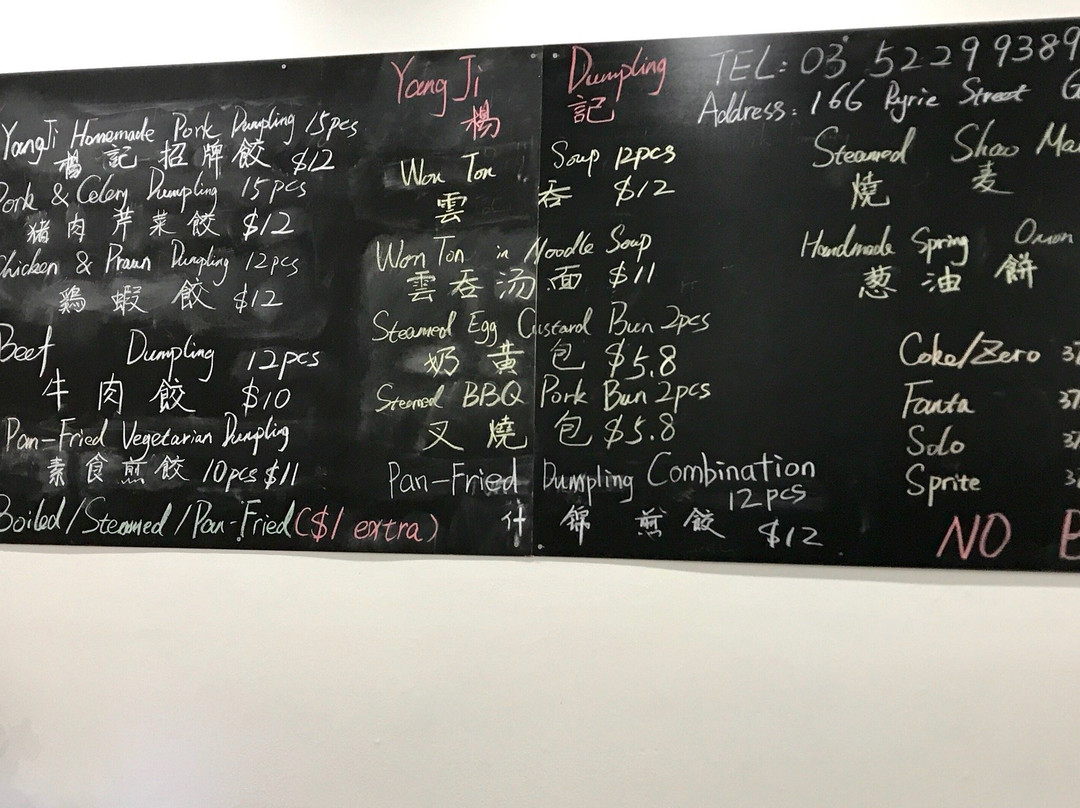 YangJi Homemade Pork Dumpling 15pcs
楊記招牌餃 $12
Pork & Celery Dumpling 15pcs
猪肉芹菜餃 $12
Chicken & Prawn Dumpling 12pcs
鶏蝦餃 $12
Beef Dumpling 12pcs
牛肉餃 $10
Pan-Fried Vegetarian Dumpling
素食煎餃 10pcs $11
Boiled/Steamed/Pan-Fried($1 extra)
Yang Ji Dumpling
楊記
Won Ton Soup 12pcs
雲吞 $12
Won Ton in Noodle Soup
雲吞汤面 $11
Steamed Egg Custard Bun 2pcs
奶黄包 $5.8
Steamed BBQ Pork Bun 2pcs
叉燒包 $5.8
Pan-Fried Dumpling Combination
12pcs
什錦煎餃 $12
TEL: 03 52299389
Address: 166 Ryrie Street G
Steamed Shao Mai
燒麦
Handmade Spring Onion
葱油餅
Coke/Zero 37
Fanta 37
Solo 37
Sprite 3
NO